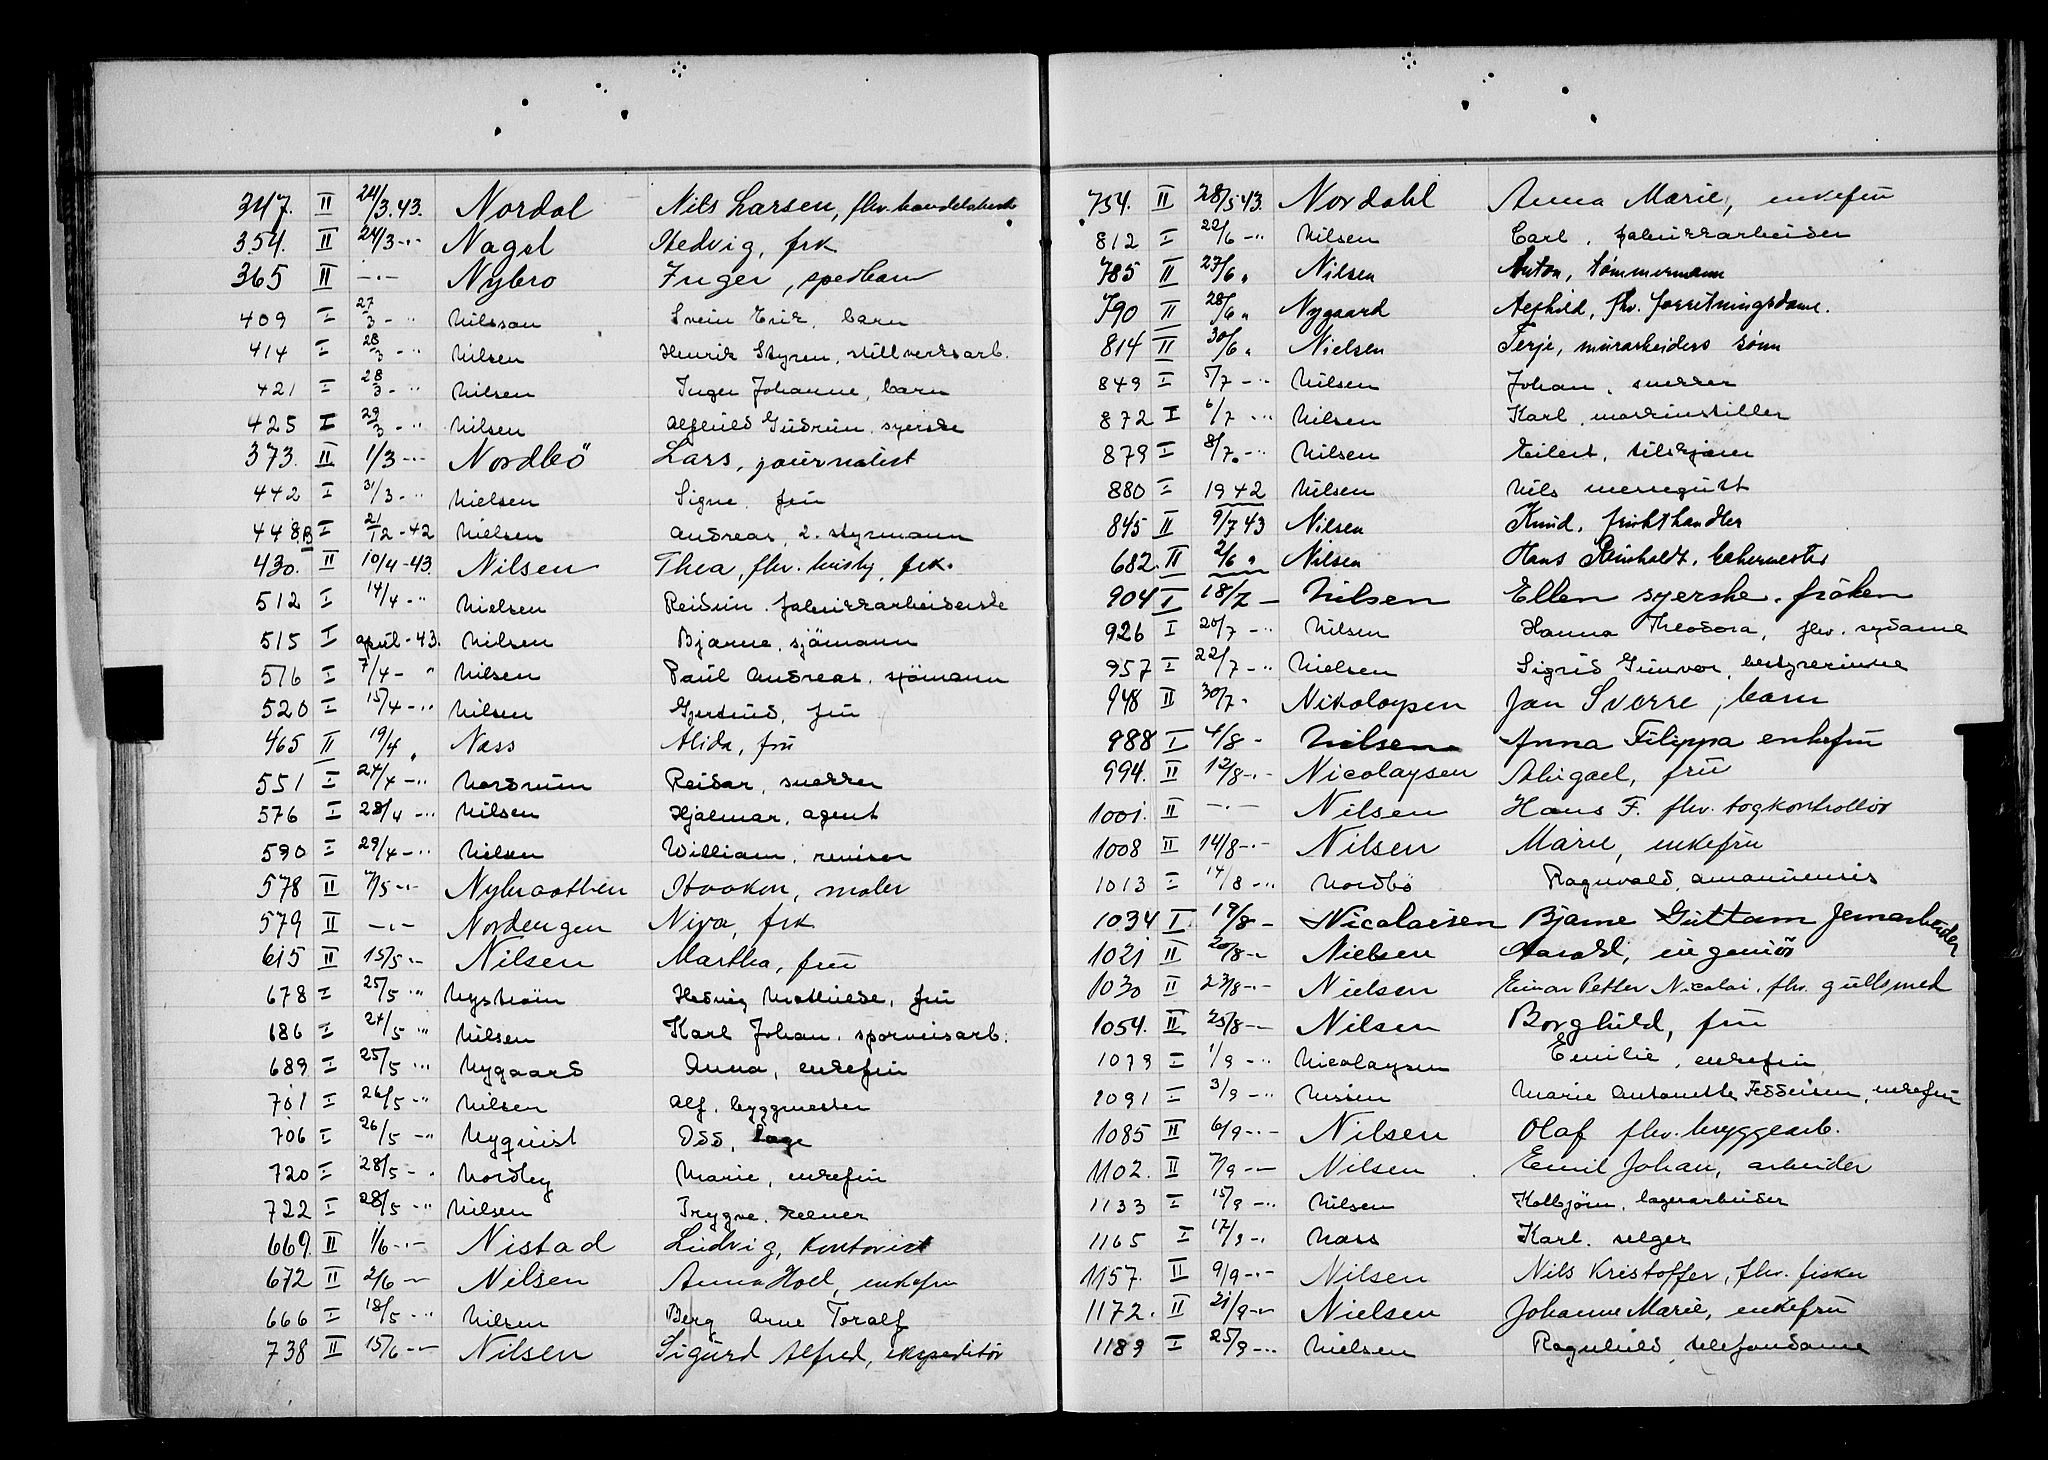 347. II 24/3.43. Nordal Nils Larsen, fhv.
354. II 24/3 -"- Nagel Hedvig, frk
365 II -"- Nybro Inger, spedbarn
409 I 27/3 - " Nilsson Svein Erik, barn
414 I 28/3 - " Nilsen Henrik Styren,
421 I 28/3 - " Nilsen Inger Johanne, barn
425 I 29/3 - " Nilsen Alfhild Gudrun, syerske
373. II 1/3 -"- Nordbö Lars, journalist
442 I 31/3 - " Nielsen Signe, fru
448B I 21/12 - 42 Nielsen Andreas, 2. styrmann
430. II 10/4 -43. Nilsen Thea, fhv. frk.
512 I 14/4 - " Nielsen Reidun, fabrikkarbeiderske
515 I april - 43. Nilsen Bjarne, sjömann
516 I 7/4 - " Nilsen Paul Andreas, sjömann
520 I 15/4 - " Nilsen Gjertrud, fru
465 II 19/4 " Næss Alida, fru
551 I 24/4 - " Nordrum Reidar, snekker
576 I 28/4 - " Nilsen Hjalmar, agent
590 I 29/4 - " Nilsen William, revisor
578 II 7/5 -"- Nybraathen Haakon, maler
579 II -"- Nordengen Niva, frk
615 II 15/5 -"- Nilsen Martha, fru
678 I 25/5 - " Nyström Hedvig Mathilde, fru
686 I 24/5 - " Nilsen Karl Johan, sporveisarb.
689 I 25/5 - " Nygaard Anna, enkefru
701 I 26/5 - " Nilsen Alf, byggmester
706 I 26/5 - " Nyquist Odd, lage
720 I 28/5 - " Nordby Marie, enkefru
722 I 28/5 - " Nilsen Trygve, kelner
669. II 1/6 -"- Nistad Ludvig, kontorist
672 II 2/6 -"- Nilsen Anna Hoel, enkefru
666 I 18/5 - " Nilsen Berg Arne Toralf
738 II 15/6 -"- Nilsen Sigurd Alfred, ekspeditör
754. II 28/5 43. Nordahl Anna Marie, enkefru
812 I 22/6 - " Nilsen Carl, fabrikkarbeider
785 II 27/6 " Nilsen Anton, tömmermann
790 II 28/6 " Nygaard fhv. forretningsdame.
814 II 30/6 " Nielsen Terje, murarbeiders sönn
849 I 5/7 - " Nilsen Johan, snekker
872 I 6/7 - " Nilsen Karl, maskinstiller
879 I 8/7 - " Nilsen Eilert, bilskjörer
880 I 1942 Nilsen Nils messegutt
845 II 9/7 43 Nilsen Knud, frukthandler
682. II 2/6 " Nilsen Hans Reinholdt, bakermester
904 I 18/7 - Nilsen Ellen syerske. fröken
926 I 20/7 - " Nilsen Hanna Theodora, fhv. sydame
957 I 22/7 - " Nielsen Sigrid Gunvor, bestyrerinne
948 II 30/7 " Nikolaysen Jan Sverre, barn
988 I 4/8 - Nilsen Anna Filippa enkefru
994. II 12/8 -"- Nicolaysen Abigael, fru
1001. II -"- Nilsen Hans F. fhv. togkontrollör
1008 II 14/8 -"- Nilsen Marie, enkefru
1013 I 14/8 - " Nordbö Ragnvald, amanuensis
1034 I 19/8 - Nicolaisen Bjarne Guttorm Jernarbeider
1021 II 20/8 -"- Nielsen Harald, ingeniör
1030 II 23/8 -"- Nielsen Einar Petter Nicolai, fhv. gullsmed
1054. II 25/8 -"- Nilsen Borghild, fru
1079 I 1/9 - " Nicolaysen Emilie, enkefru
1091 I 3/9 - " Nissen Marie Antonette Feddersen, enkefru
1085 II 6/9 -"- Nilsen Olaf fhv. bryggearb.
1102. II 7/9 -"- Nilsen Emil Johan, arbeider
1133 I 15/9 - " Nilsen Kolbjörn, lagerarbeider
1165 I 17/9 - " Næss Karl, selger
1157. II 9/9 -"- Nilsen Nils Kristoffer, fhv. fisker
1172. II 21/9 -"- Nielsen Johanne Marie, enkefru
1189 I 25/9 - " Nielsen Ragnhild, telefondame